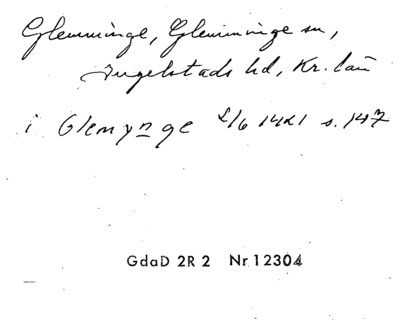 Glemminge, Glemminge sn,
Ingelstads hd, Kr. län
i Glemynge 2/6 1421 s. 147
GdaD 2R 2 Nr 12304